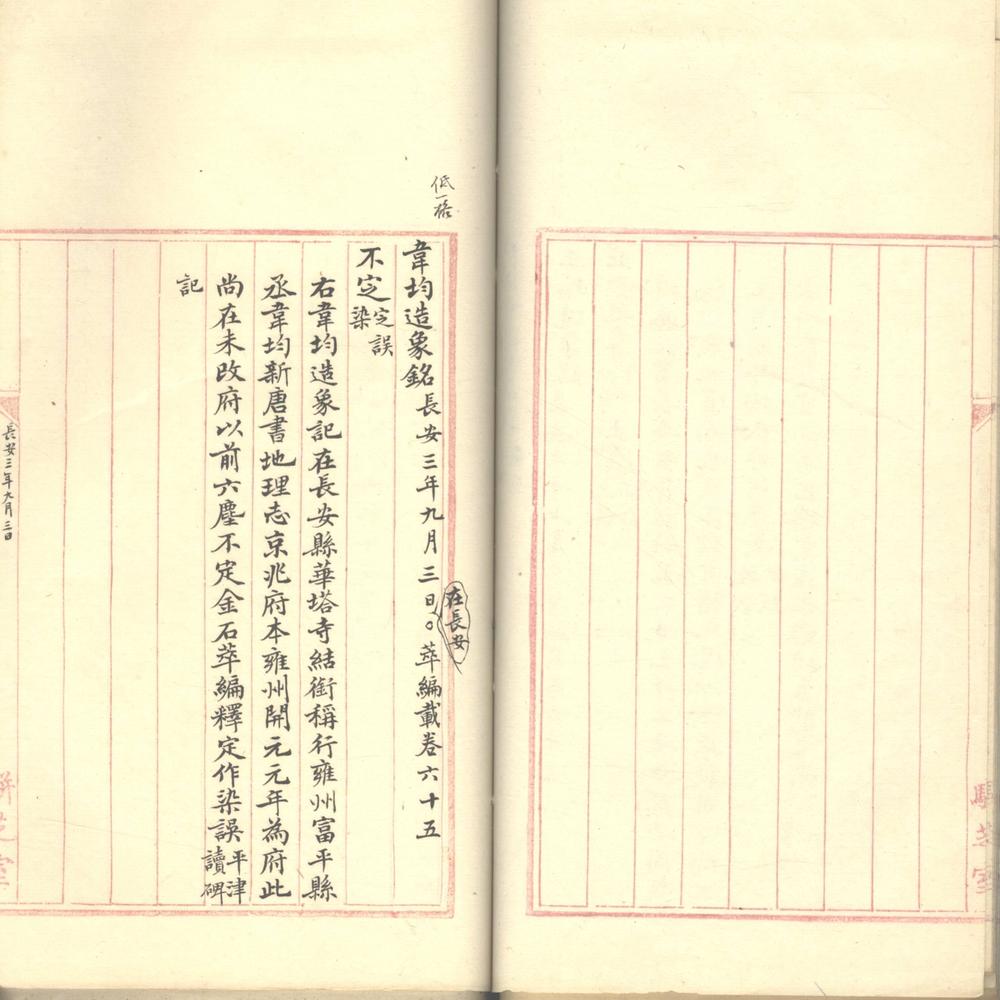 低一格
韋均造象銘長安三年九月三日○萃編載卷六十五
在長安
不定定誤染
右韋均造象記在長安縣華塔寺結銜稱行雍州富平縣
丞韋均新唐書地理志京兆府本雍州開元元年為府此
尚在未改府以前六塵不定金石萃編釋定作染誤平津讀碑
記
長安三年九月三日